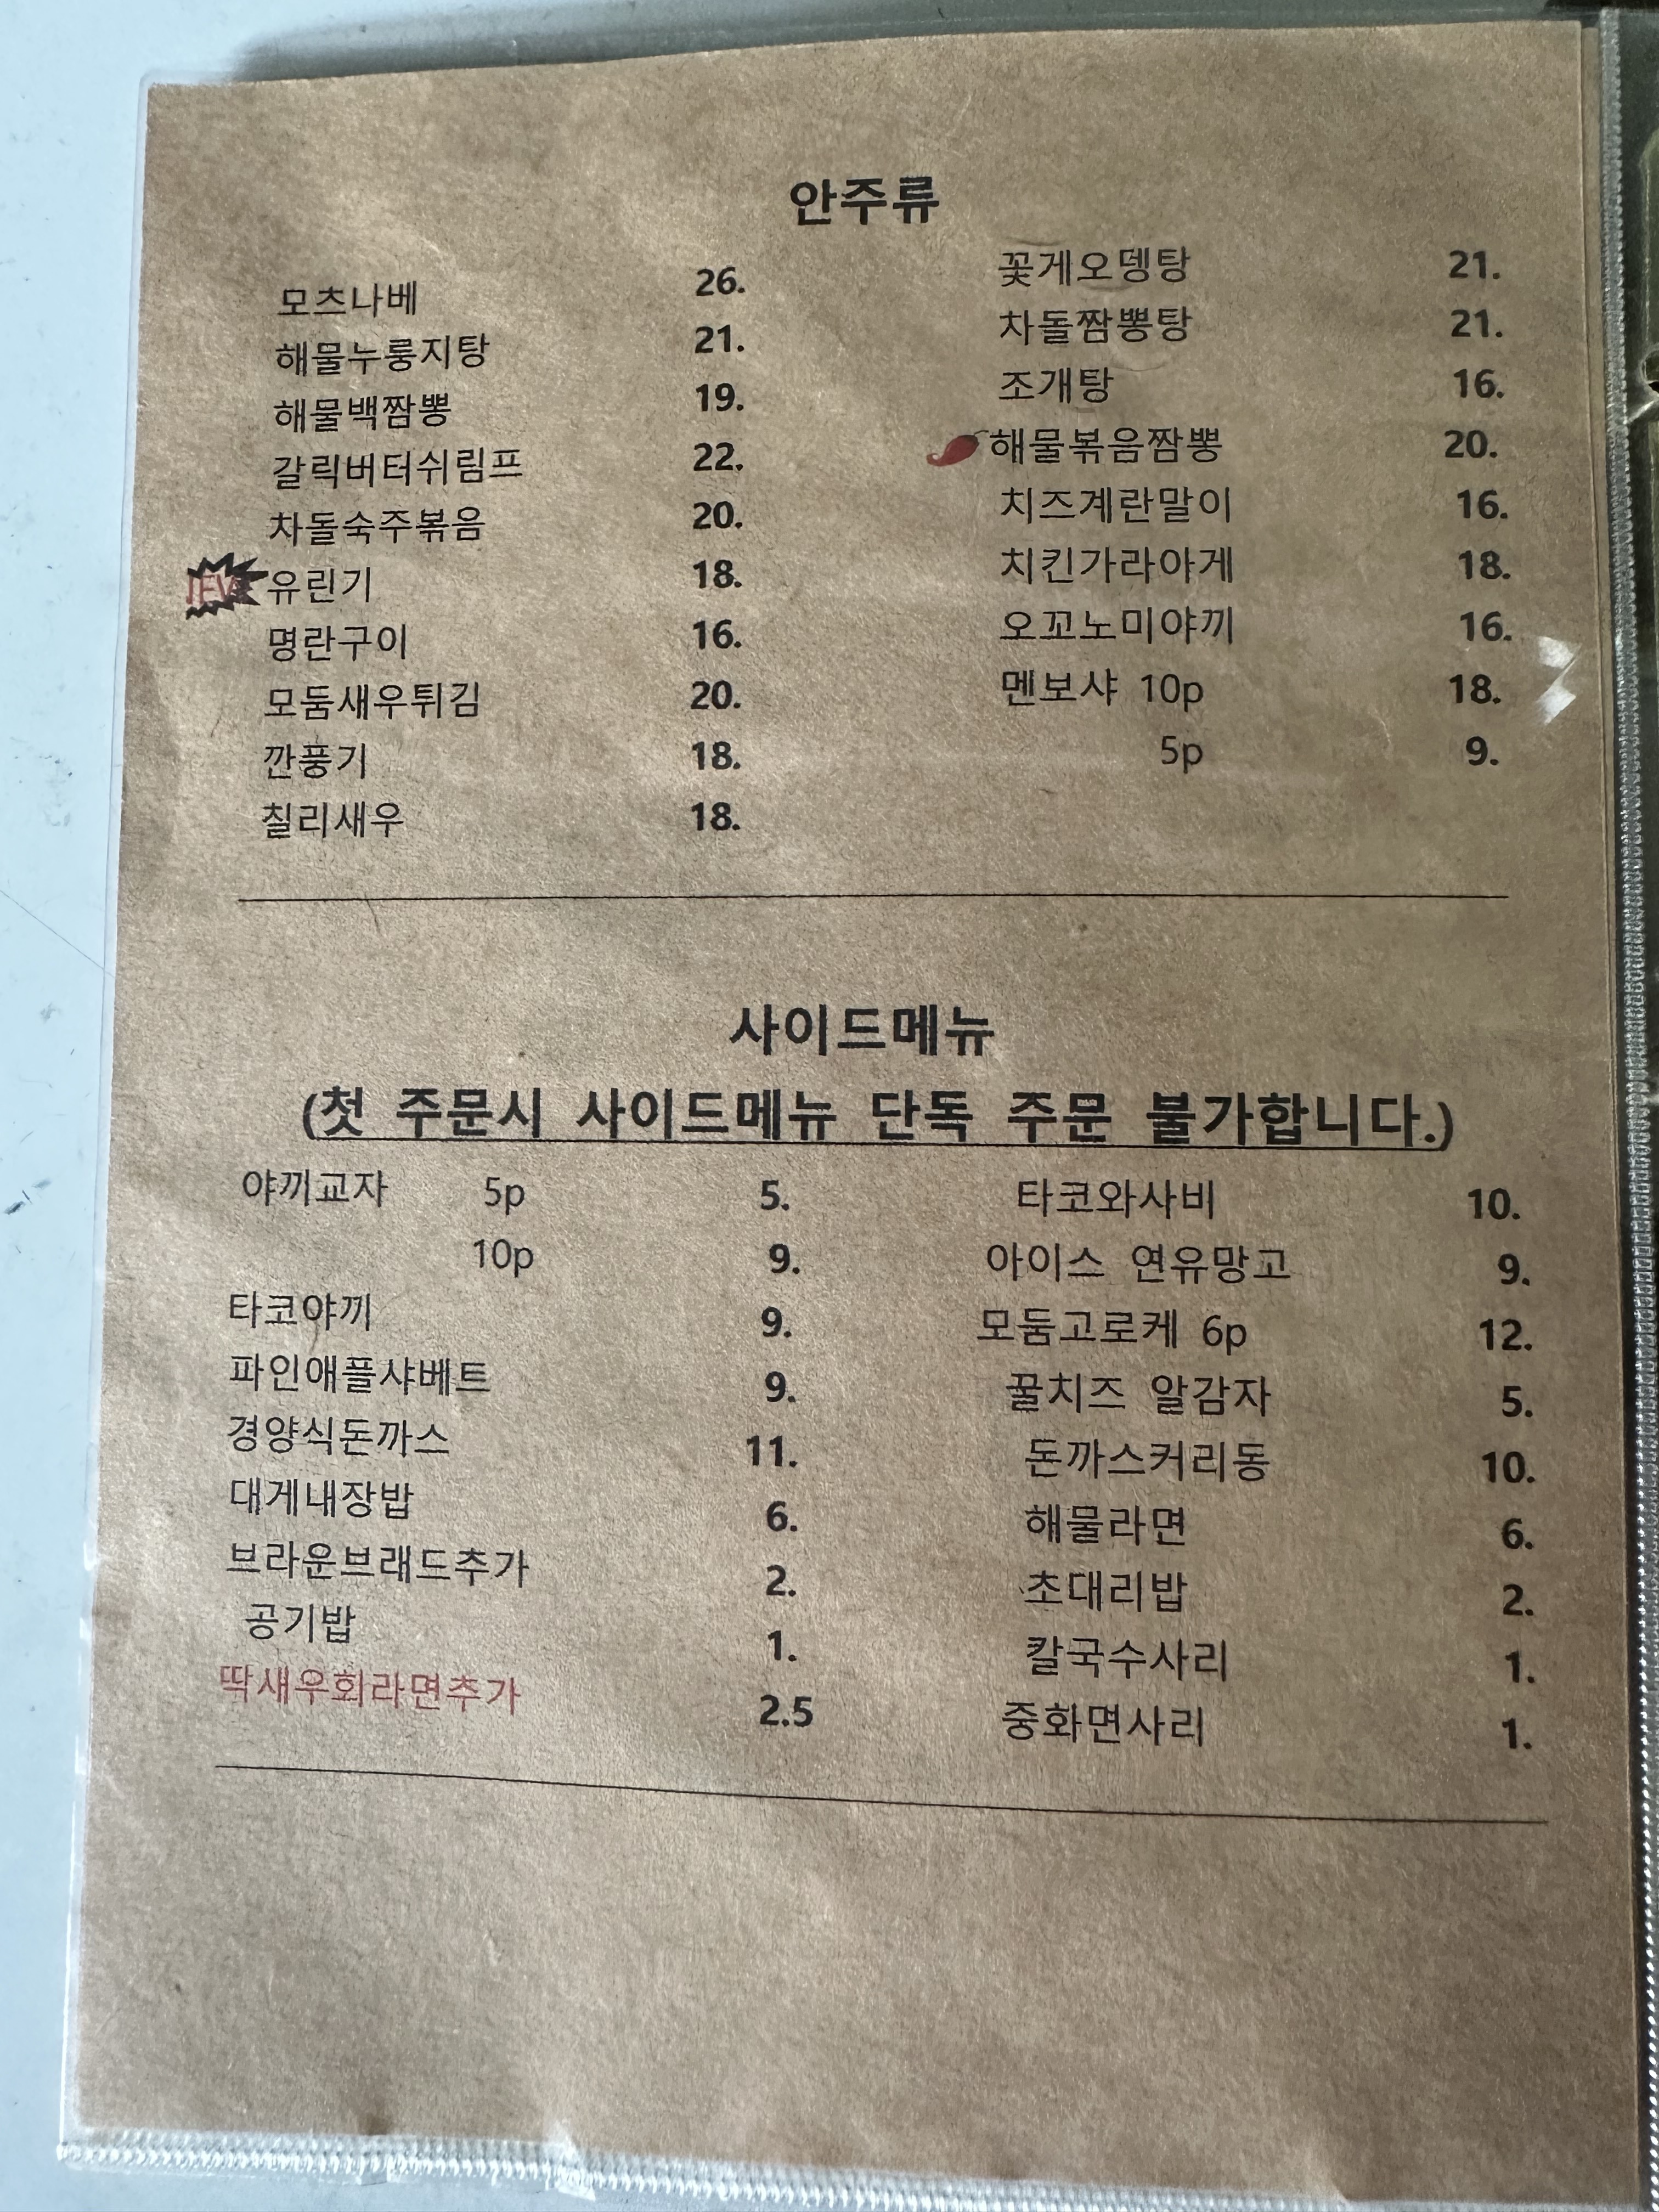 안주류
모츠나베 26.
해물누룽지탕 21.
해물백짬뽕 19.
갈릭버터쉬림프 22.
차돌숙주볶음 20.
유린기 18.
명란구이 16.
모둠새우튀김 20.
깐풍기 18.
칠리새우 18.
꽃게오뎅탕 21.
차돌짬뽕탕 21.
조개탕 16.
해물볶음짬뽕 20.
치즈계란말이 16.
치킨가라아게 18.
오꼬노미야끼 16.
멘보샤 10p 18.
5p 9.
사이드메뉴
(첫 주문시 사이드메뉴 단독 주문 불가합니다.)
야끼교자 5p 5.
10p 9.
타코야끼 9.
파인애플샤베트 9.
경양식돈까스 11.
대게내장밥 6.
브라운브래드추가 2.
공기밥 1.
딱새우회라면추가 2.5
타코와사비 10.
아이스 연유망고 9.
모둠고로케 6p 12.
꿀치즈 알감자 5.
돈까스커리동 10.
해물라면 6.
초대리밥 2.
칼국수사리 1.
중화면사리 1.